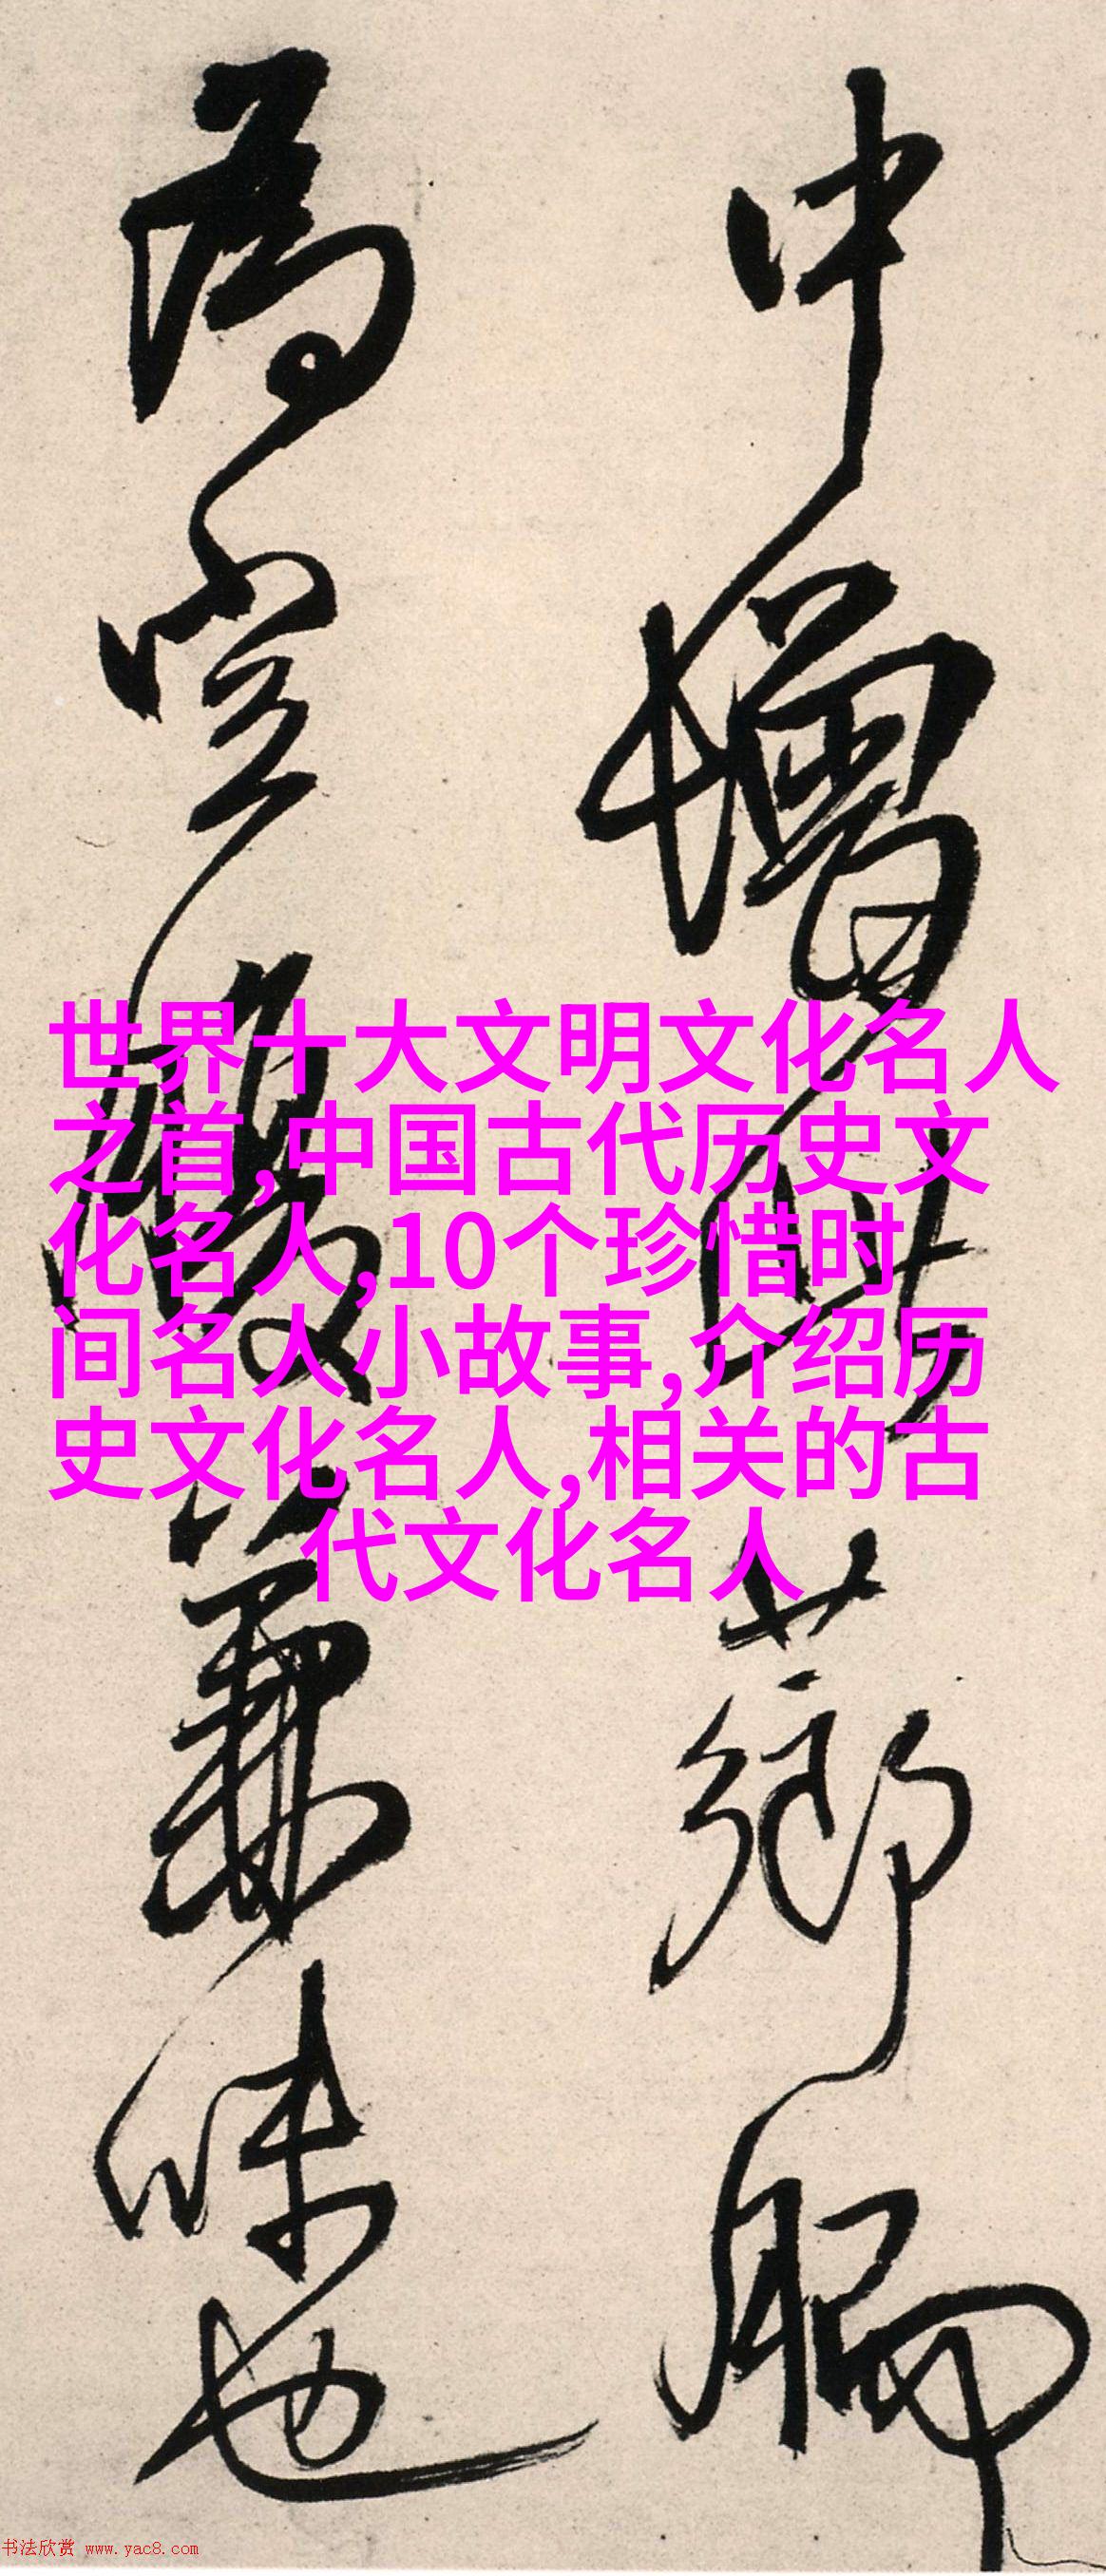 中增肝
薌膈
為燈
兼味也
世界十大文明文化名人
之首,中国古代历史文
化名人,10个珍惜时
间名人小故事,介绍历
史文化名人,相关的古
代文化名人
书法欣赏 www.yac8.com